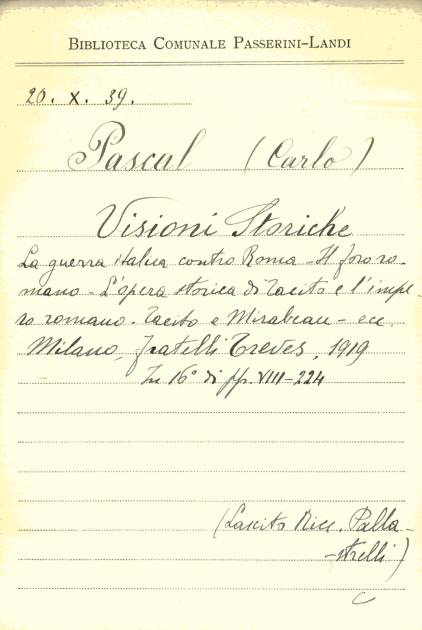 BIBLIOTECA COMUNALE PASSERINI-LANDI
20. X. 39.
Pascal (Carlo)
Visioni Storiche
La guerra italica contro Roma - Il foro ro-
mano - L'opera storica di Tacito e l'impe-
ro romano. Tacito e Mirabeau - ecc.
Milano, fratelli Treves, 1919
In 16° di pp. VIII-224
(Lascito Ricc. Palla-
-strelli)
C